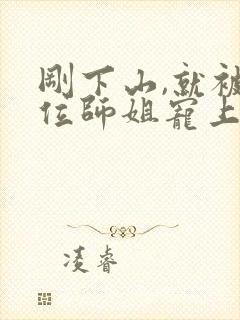 剛下山,就被
位師姐寵上
凌睿